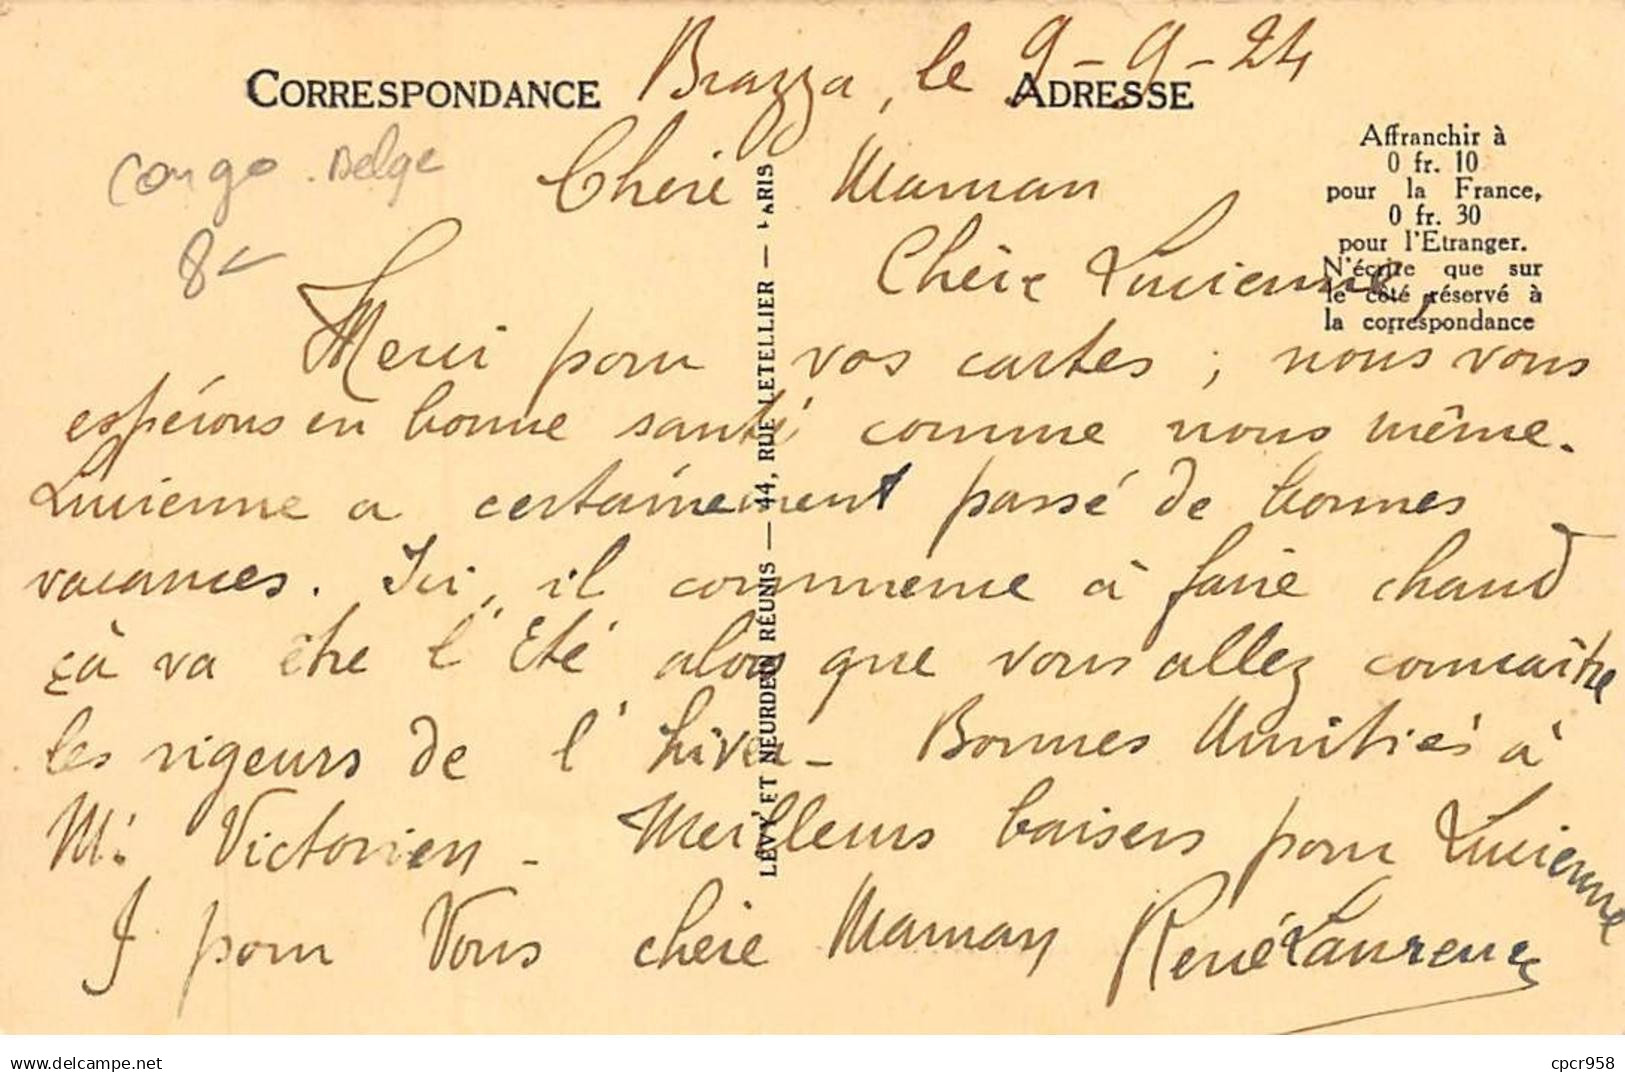 Brazza, le 9-9-24
CORRESPONDANCE
ADRESSE
Congo.Belge
8
Affranchir à
0 fr. 10
pour la France,
0 fr. 30
pour l'Etranger.
N'écrire que sur
le côté réservé à
la correspondance
LÉVY ET NEURDEIN RÉUNIS — 44, RUE LETELLIER — PARIS
Chère Maman
Chère Lucienne,
Merci pour vos cartes ; nous vous
espérons en bonne santé comme nous même.
Lucienne a certainement passé de bonnes
vacances. Ici, il commence à faire chaud
çà va être l'Eté alors que vous allez connaître
les rigeurs de l'hiver - Bonnes Amitiés à
Mr Victorien - Meilleurs baisers pour Lucienne
& pour Vous chère Maman
René Laurence
www.delcampe.net
cpcr958